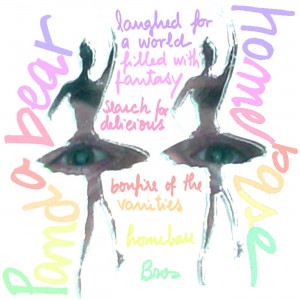 Panda bear
laughed for
a world
filled with
fantasy
search for
delicious
bonfire of the
vanities
homebase
Bros
home base